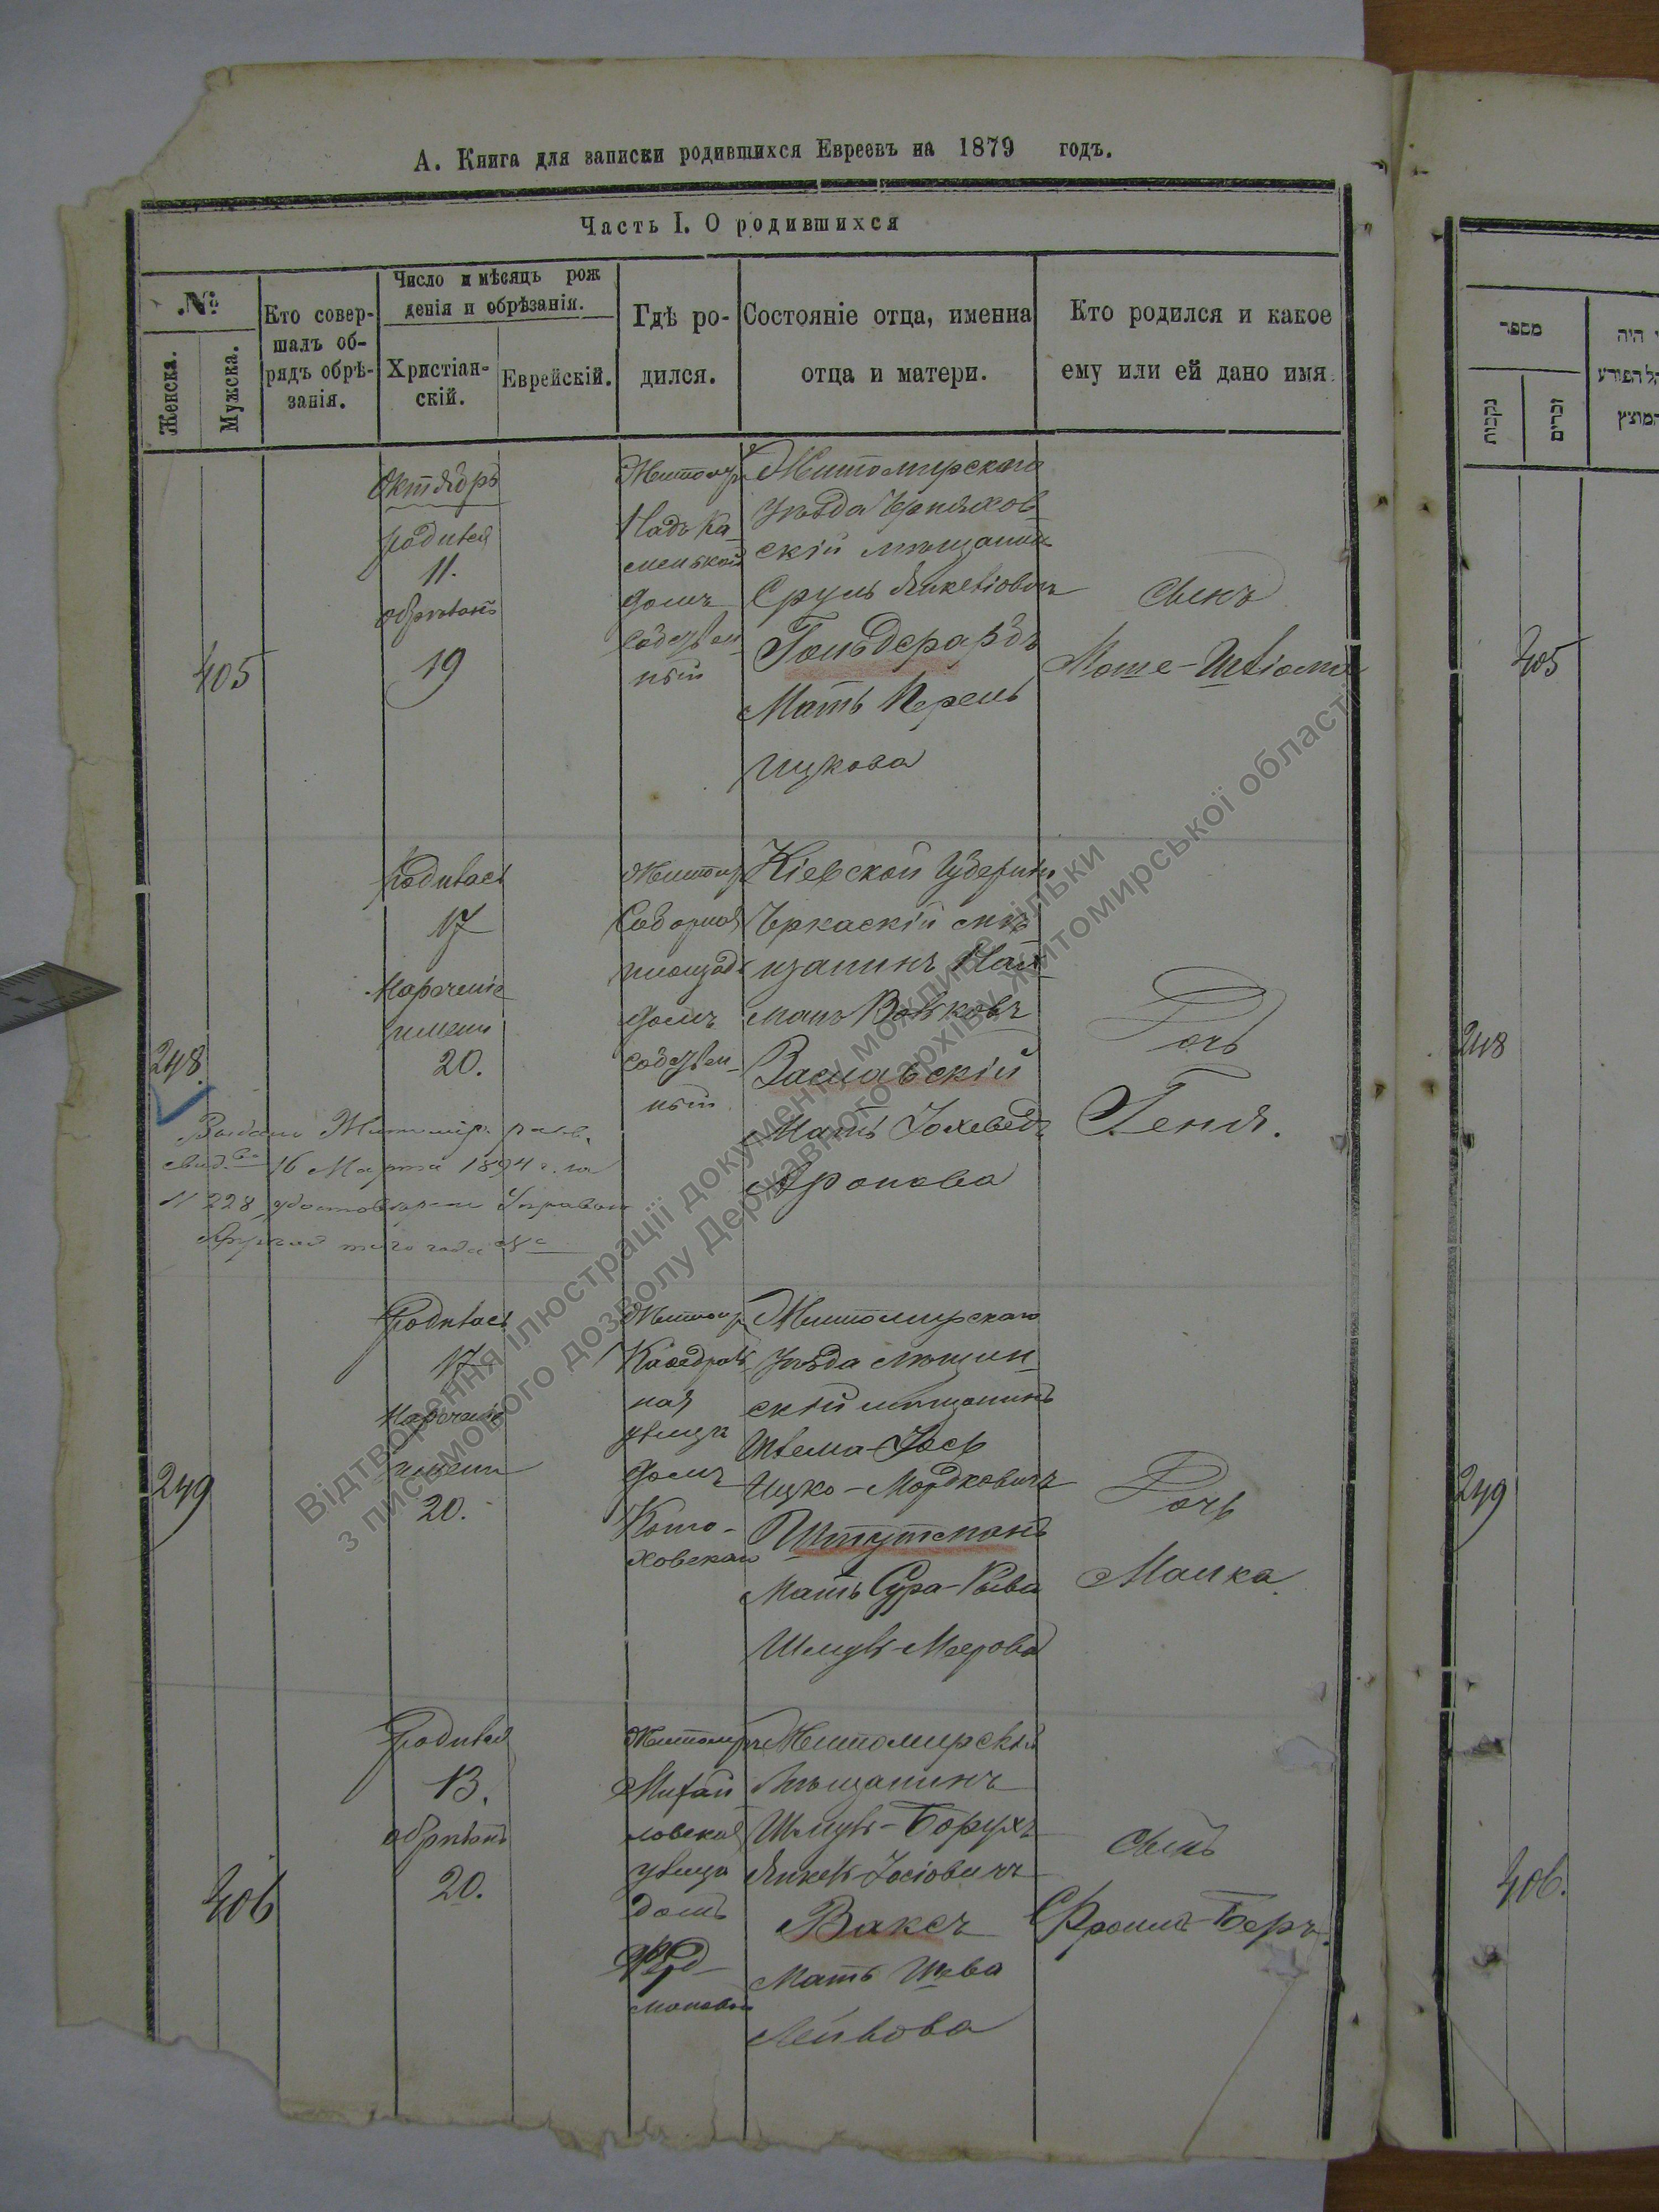 А. Книга для записки родившихся Евреевъ на 1879 годъ.
Часть I. О родившихся
№
Женска.
Мужска.
Кто совер-
шалъ об-
рядъ обрѣ-
занія.
Число и мѣсяцъ рож
денія и обрѣзанія.
Христіан-
скій.
Еврейскій.
Гдѣ ро-
дился.
Состояніе отца, имениа
отца и матери.
Кто родился и какое
ему или ей дано имя.
405
Октябрь
родился
11.
обрѣзанъ
19
Житомир
Надъ Ка-
менькой
домъ
собствен-
ный
Житомирскаго
уѣзда Черняхов-
скій мѣщанинъ
Сруль Янкеліовичъ
Гольдфарбъ
Мать Перель
Ицкова
Сынъ
Моше-Шліома
248.
Родилась
17
Нареченіе
имени
20.
Житомир
Соборная
площадь
домъ
собствен-
ный
Кіевской Губерніи
Черкаскій мѣ
щанинъ Най-
манъ Вольковъ
Заславскій
Мать Іохеведъ
Аронова
Дочь
Геня.
Выдано Житомир. равв.
свид.во 16 Марта 1894 г. за
№ 228
того года №
249
Родилась
17
Нареченіе
имени
20.
Житомир
Каѳедраль
ная
улица
домъ
Кото-
ховской
Житомирскаго
уѣзда
скій мѣщанинъ
Шлема-Іось
Ицко-Мордковичъ
Штутманъ
Мать Сура-Рыва
Шмуль-Меерова
Дочь
Малка.
406
Родился
13.
обрѣзанъ
20.
Житомиръ
Михай
ловская
улица
домъ
мановой
Житомирскій
Мѣщанинъ
Шмуль-Борухъ
Янкель-Іосіовичъ
Ваксъ
Мать Шева
Лейбова
Сынъ
Фроимъ-Беръ.
מספר
נקבות
זכרים
היה
המוצץ
405
248
249
406.
Відтворення ілюстрації документу можливе тільки
з письмового дозволу Державного архіву Житомирської області